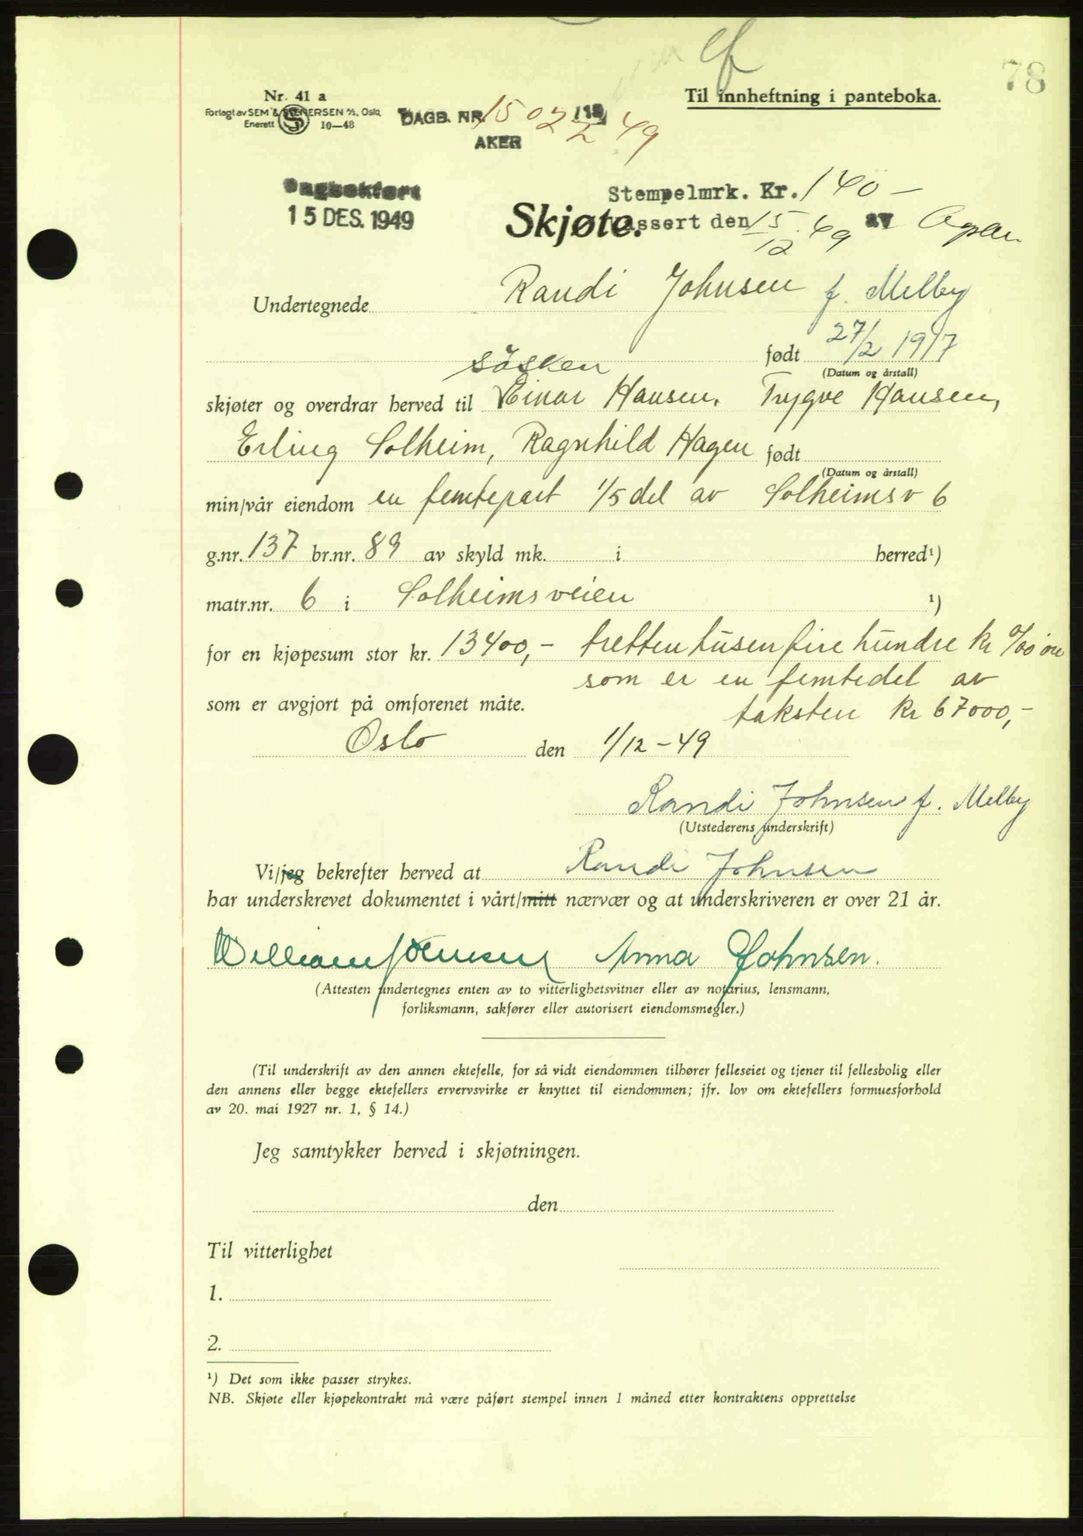 78
Nr. 41 a
Forlagt av SEM & STENERSEN A/S, Oslo
Enerett 10—48
Til innheftning i panteboka.
DAGB. NR. 15022 49
AKER
Dagbokført
15 DES. 1949
Stempelmrk. Kr. 140 –
Skjøte.
assert den 15/12 49 av
Undertegnede Randi Johnsen f. Melby
født 27/2 1917
(Datum og årstall)
søsken
skjøter og overdrar herved til Einar Hansen, Trygve Hansen,
Erling Solheim, Ragnhild Hagen født
(Datum og årstall)
min/vår eiendom en femtepart 1/5 del av Solheimsv 6
g.nr. 137 br.nr. 89 av skyld mk. i herred¹)
matr.nr. 6 i Solheimsveien ¹)
for en kjøpesum stor kr. 13400,- trettentusenfirehundre kr 0/00 øre
som er en femtedel av
som er avgjort på omforenet måte.
taksten kr 67000,-
Oslo den 1/12 – 49
Randi Johnsen f. Melby
(Utstederens underskrift)
Vi/jeg bekrefter herved at Randi Johnsen
har underskrevet dokumentet i vårt/mitt nærvær og at underskriveren er over 21 år.
William Johnsen Anna Johnsen.
(Attesten undertegnes enten av to vitterlighetsvitner eller av notarius, lensmann,
forliksmann, sakfører eller autorisert eiendomsmegler.)
(Til underskrift av den annen ektefelle, for så vidt eiendommen tilhører felleseiet og tjener til fellesbolig eller
den annens eller begge ektefellers ervervsvirke er knyttet til eiendommen; jfr. lov om ektefellers formuesforhold
av 20. mai 1927 nr. 1, § 14.)
Jeg samtykker herved i skjøtningen.
den
Til vitterlighet
1.
2.
¹) Det som ikke passer strykes.
NB. Skjøte eller kjøpekontrakt må være påført stempel innen 1 måned etter kontraktens opprettelse